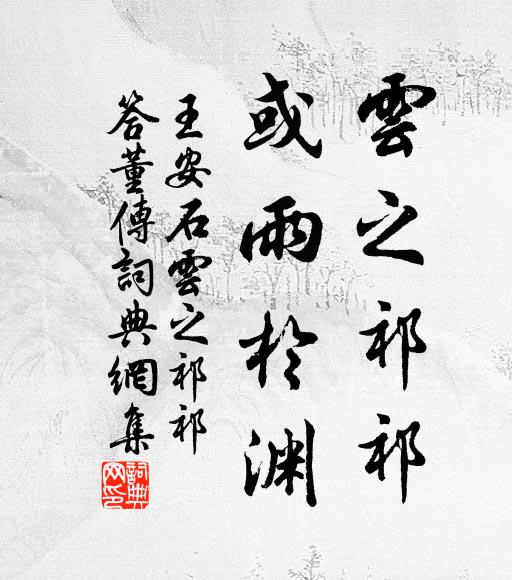 雲之祁祁
或雨於淵
王安石雲之祁祁
答董傳詞典網集
詞典
网印